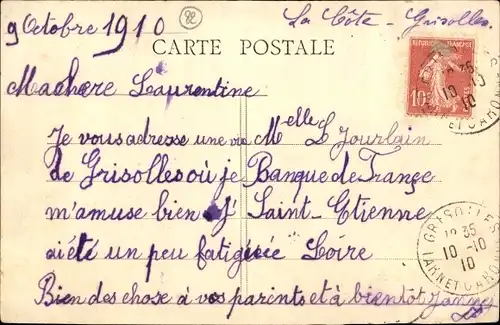 9 Octobre 1910
La Côte - Grisolles
CARTE POSTALE
Ma chere Laurentine
Je vous adresse une vue
de Grisolles où je
m'amuse bien J'
ai été un peu fatiguée
Bien des chose à vos parents et à bientôt Jeanne
Melle L Jourlain
Banque de France
Saint-Etienne
Loire
REPUBLIQUE FRANÇAISE
10
GRISOLLES
18 35
10 -10
10
TARN ET GARONNE